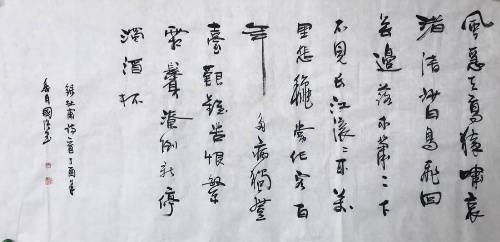 風急天高猿嘯哀
渚清沙白鳥飛回
无邊落木蕭〻下
不見長江滚〻来萬
里悲穐常作客百
年多病獨登
臺艱難苦恨繁
霜鬢潦倒新停
濁酒杯
録杜甫詩一首丁酉年
春月國